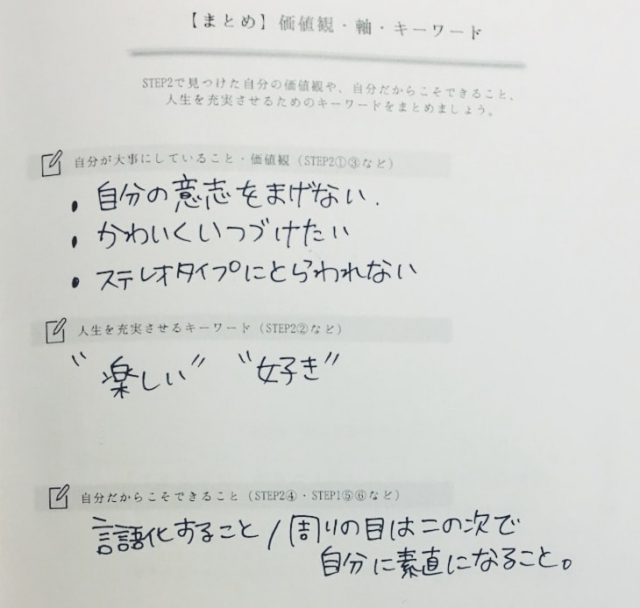 【まとめ】価値観・軸・キーワード
STEP2で見つけた自分の価値観や、自分だからこそできること、
人生を充実させるためのキーワードをまとめましょう。
自分が大事にしていること・価値観（STEP2①③など）
・自分の意志をまげない.
・かわいくいつづけたい
・ステレオタイプにとらわれない
人生を充実させるキーワード（STEP2②など）
“楽しい” “好き”
自分だからこそできること（STEP2④・STEP1⑤⑥など）
言語化すること / 周りの目は二の次で
自分に素直になること。